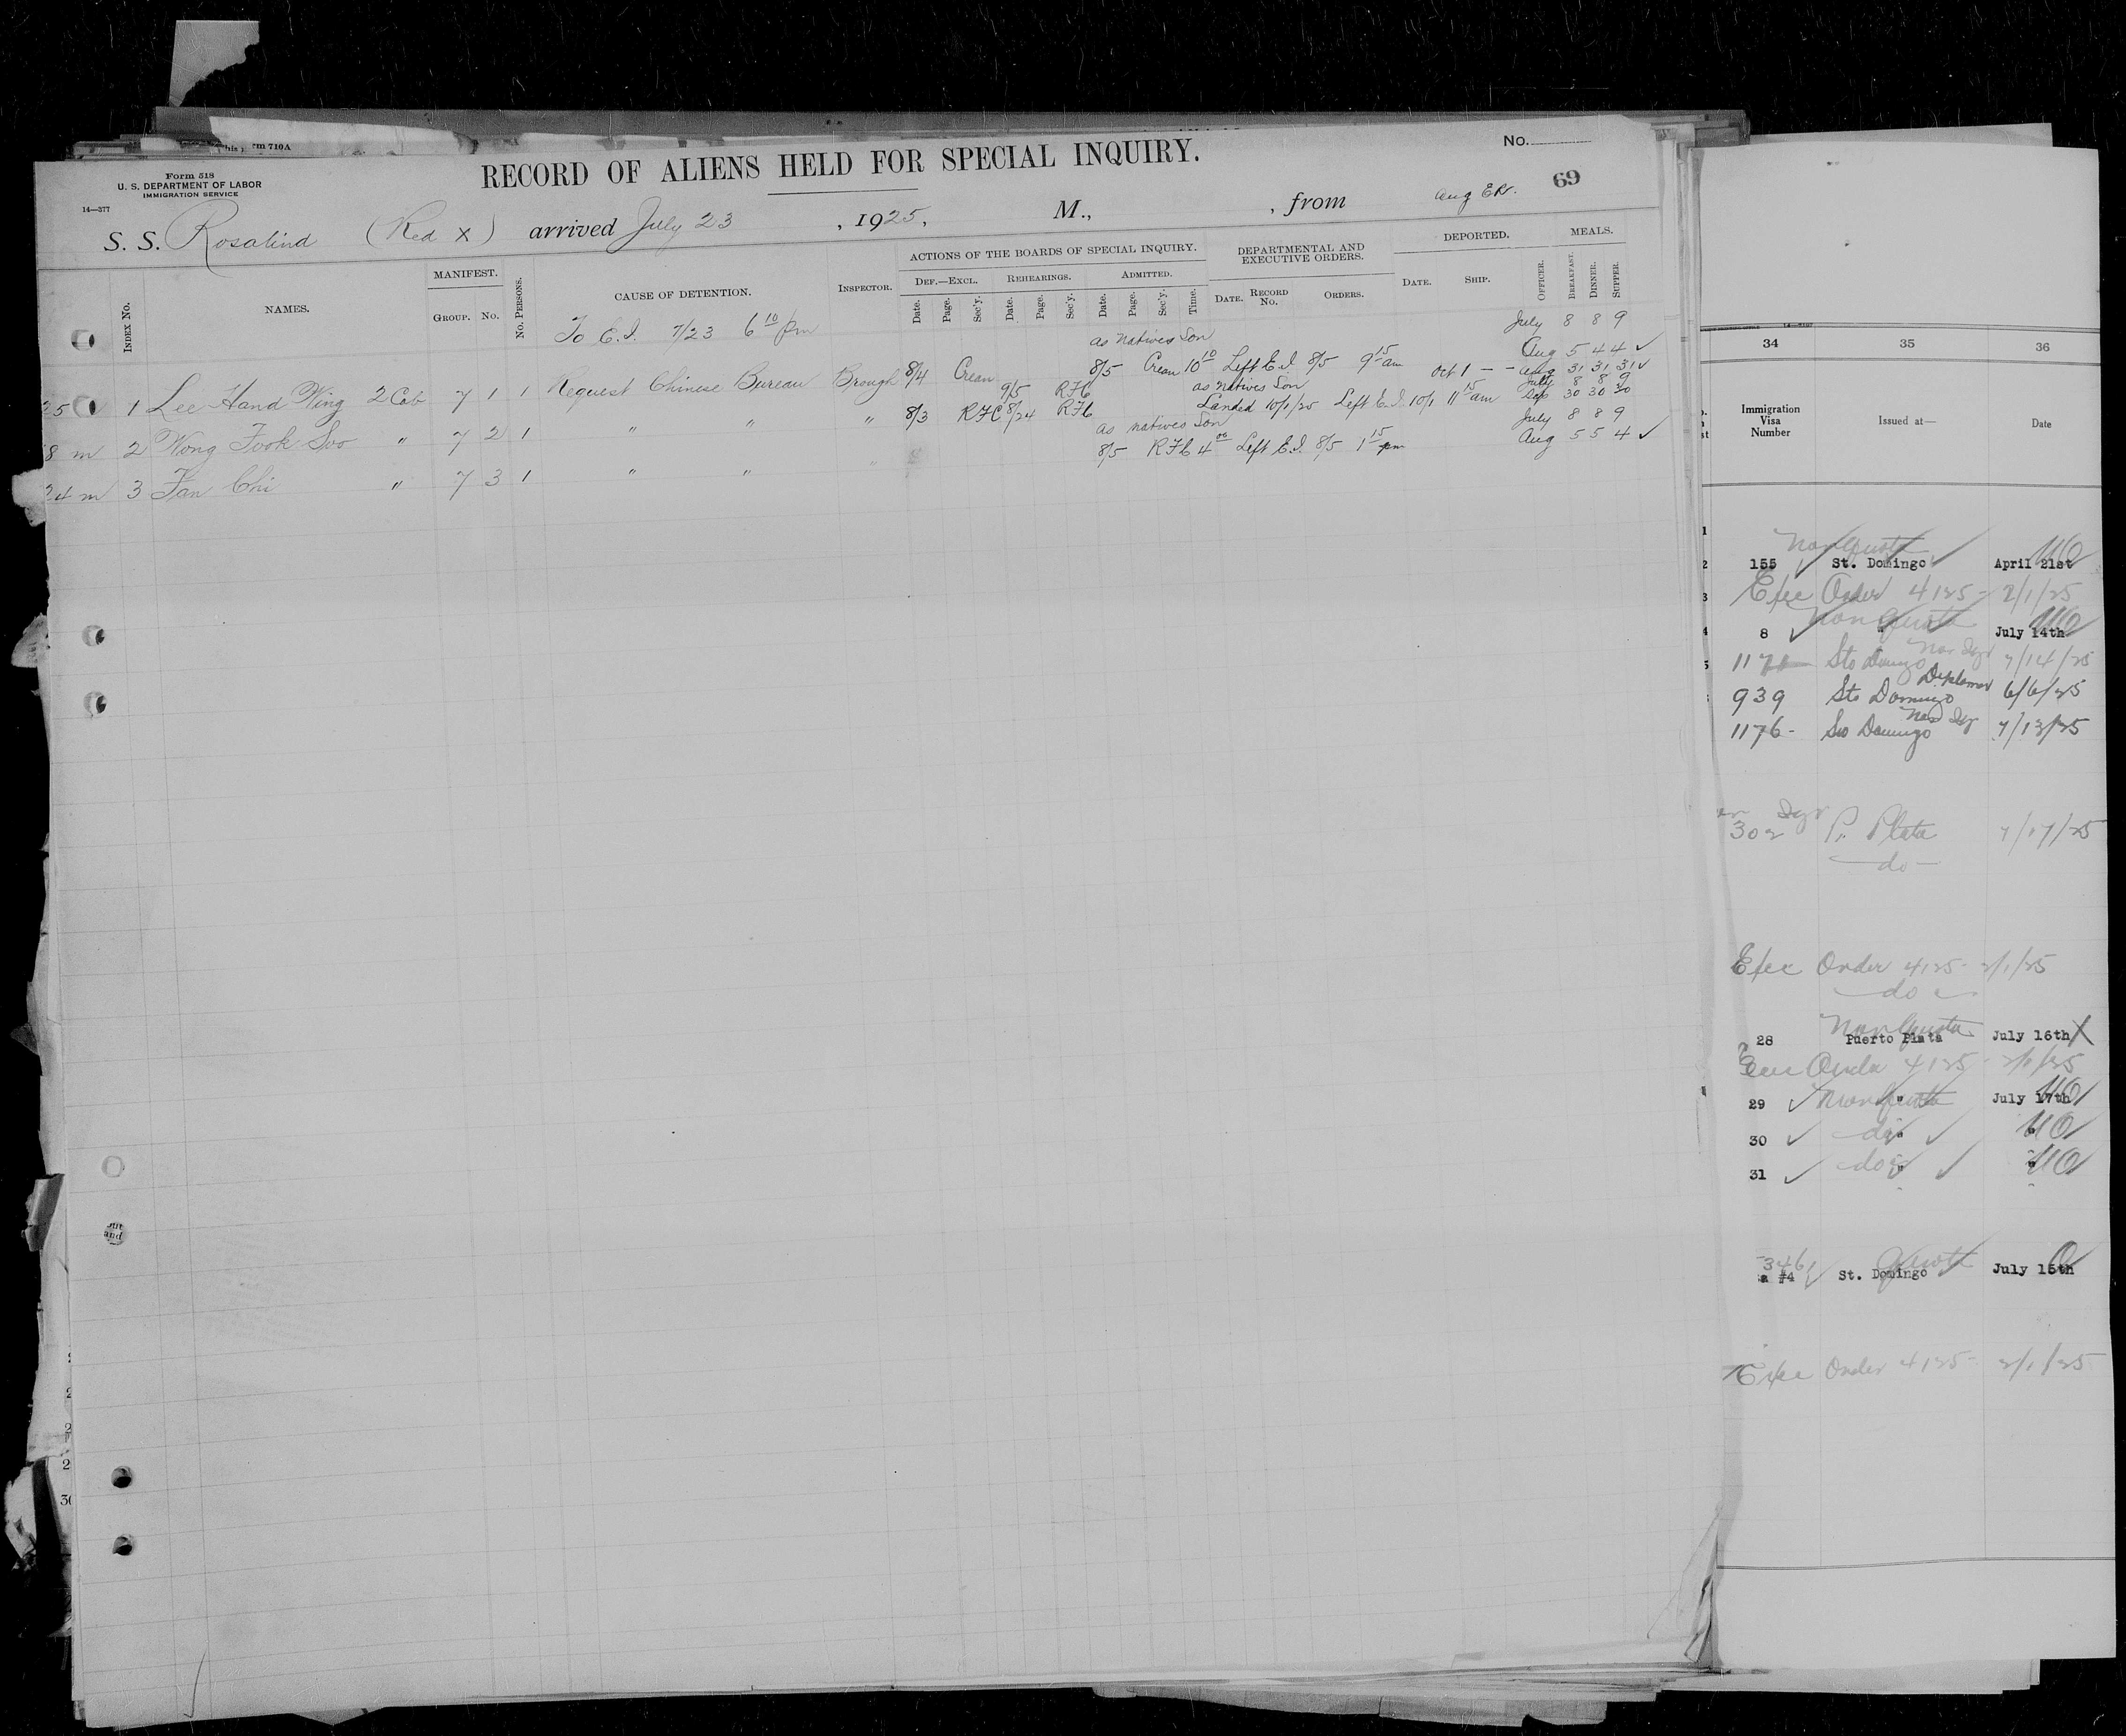 rm 710A
Form 518
U. S. DEPARTMENT OF LABOR
IMMIGRATION SERVICE
14—377
RECORD OF ALIENS HELD FOR SPECIAL INQUIRY.
No.
69
S. S. Rosalind (Red X) arrived July 23, 1925, M., , from
Aug
INDEX No.
NAMES.
MANIFEST.
GROUP. No.
No. PERSONS.
CAUSE OF DETENTION.
INSPECTOR.
ACTIONS OF THE BOARDS OF SPECIAL INQUIRY.
DEF.—EXCL. REHEARINGS. ADMITTED.
Date. Page. Sec'y. Date. Page. Sec'y. Date. Page. Sec'y. Time.
DEPARTMENTAL AND EXECUTIVE ORDERS.
DATE. RECORD No. ORDERS.
DEPORTED.
DATE. SHIP.
OFFICER.
MEALS.
BREAKFAST. DINNER. SUPPER.
To E.I. 7/23 6 10 pm
July 8 8 9
as natives Son
Aug 5 4 4 ✓
25 1 Lee Hand Wing 2 Cab 7 1 1 Request Chinese Bureau Brough 8/4 Crean 8/5 Crean 10 10 Left E.I. 8/5 9 15 am
Oct 1 — – Aug 31 31 31 ✓
July 8 8 9
as natives Son
Sep 30 30 30
8 m 2 Wong Fook Soo " 7 2 1 " " " 8/3 RFC 8/24 RFC 9/5 RFC Landed 10/1/25 Left E.I. 10/1 11 15 am
July 8 8 9
as natives Son
Aug 5 5 4 ✓
24 m 3 Fan Chi " 7 3 1 " " " 8/5 RFC 4 00 Left E.I. 8/5 1 15 pm
34 35 36
Immigration Visa Number
Issued at—
Date
Non Quota
155 St. Domingo April 21st
Exec Order 4125 - 2/1/25
Non Quota
8 " July 14th
1171 Sto Domingo 7/14/25
Diplomat
939 Sto Domingo 6/6/25
1176 - Sto Domingo 7/13/25
302 P. Plata 7/17/25
—do—
Exec Order 4125 - 2/1/25
—do—
Non Quota
28 Puerto Plata July 16th X
Exec Order 4125 - 2/1/25
29 ✓ Non Quota " July 17th
30 ✓ —do— " ✓ "
31 ✓ —do— " ✓ "
346
#4 St. Domingo Quota July 15th
Exec Order 4125 - 2/1/25
and
2
30